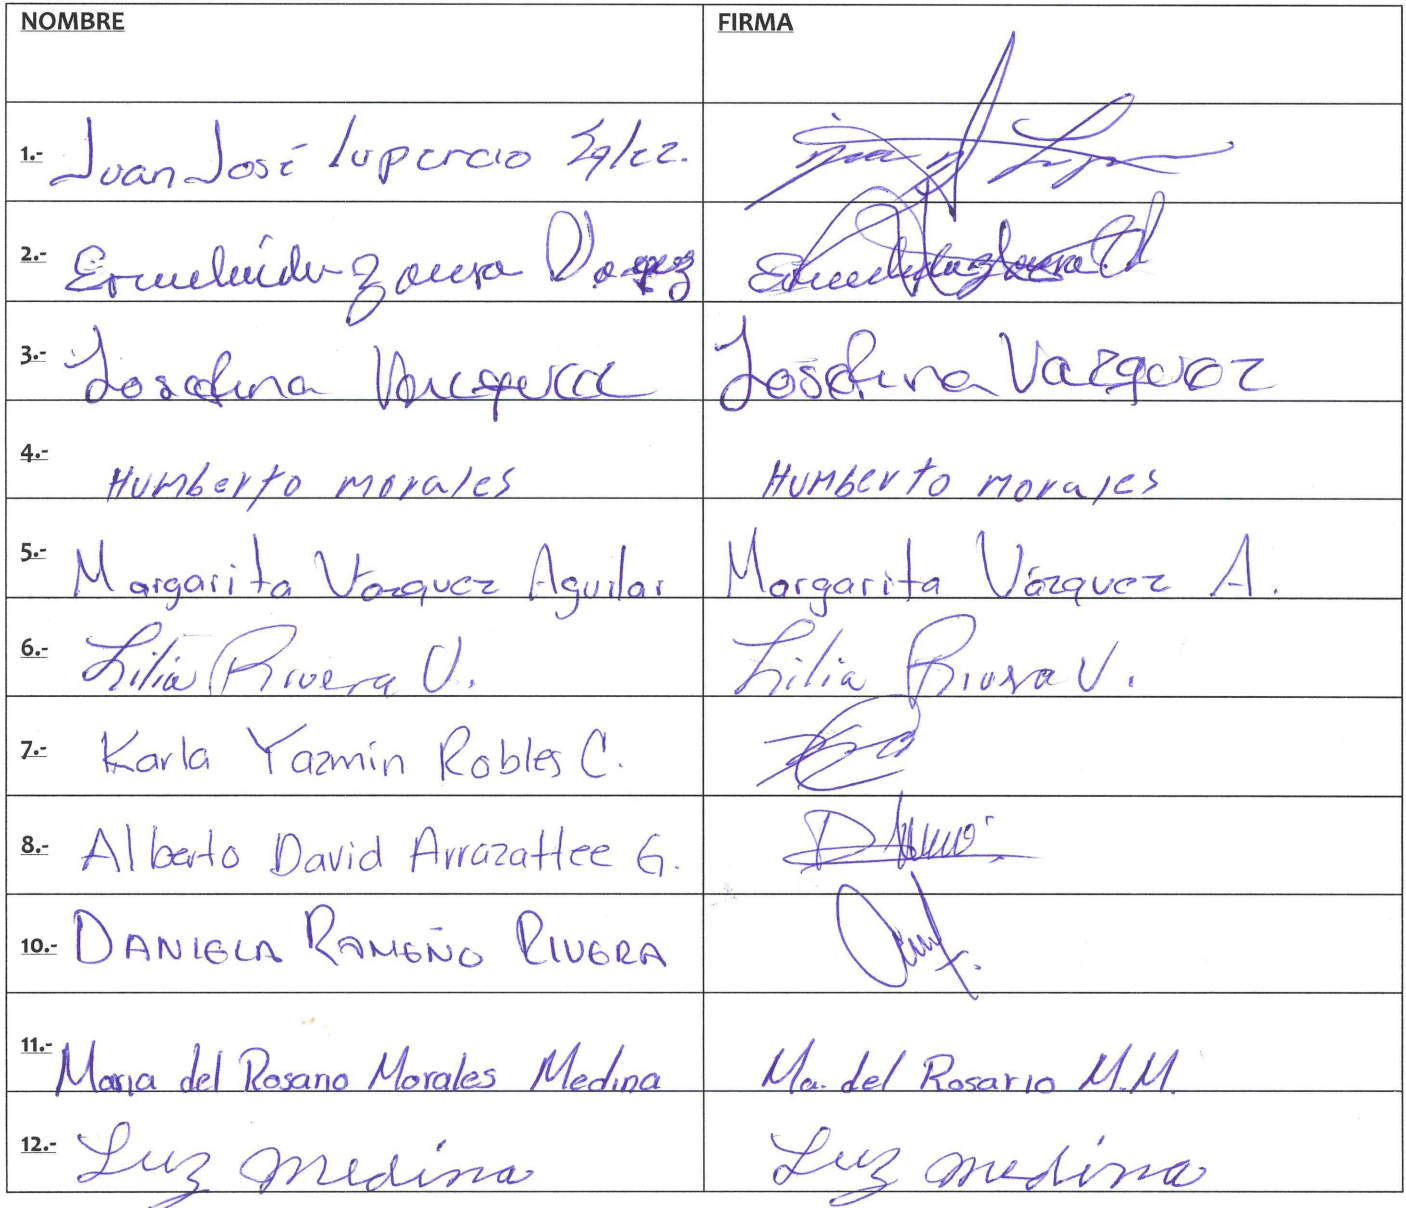 NOMBRE FIRMA
1.- Juan José Lupercio
2.- Zamora
3.- Josefina Josefina Vazquez
4.- Humberto morales Humberto morales
5.- Margarita Vazquez Aguilar Margarita Vázquez A.
6.- Lilia Rivera V. Lilia Rivera V.
7.- Karla Yazmín Robles C.
8.- Alberto David G.
10.- DANIELA RIVERA
11.- Maria del Rosario Morales Medina Ma. del Rosario M.M.
12.- Luz medina Luz medina